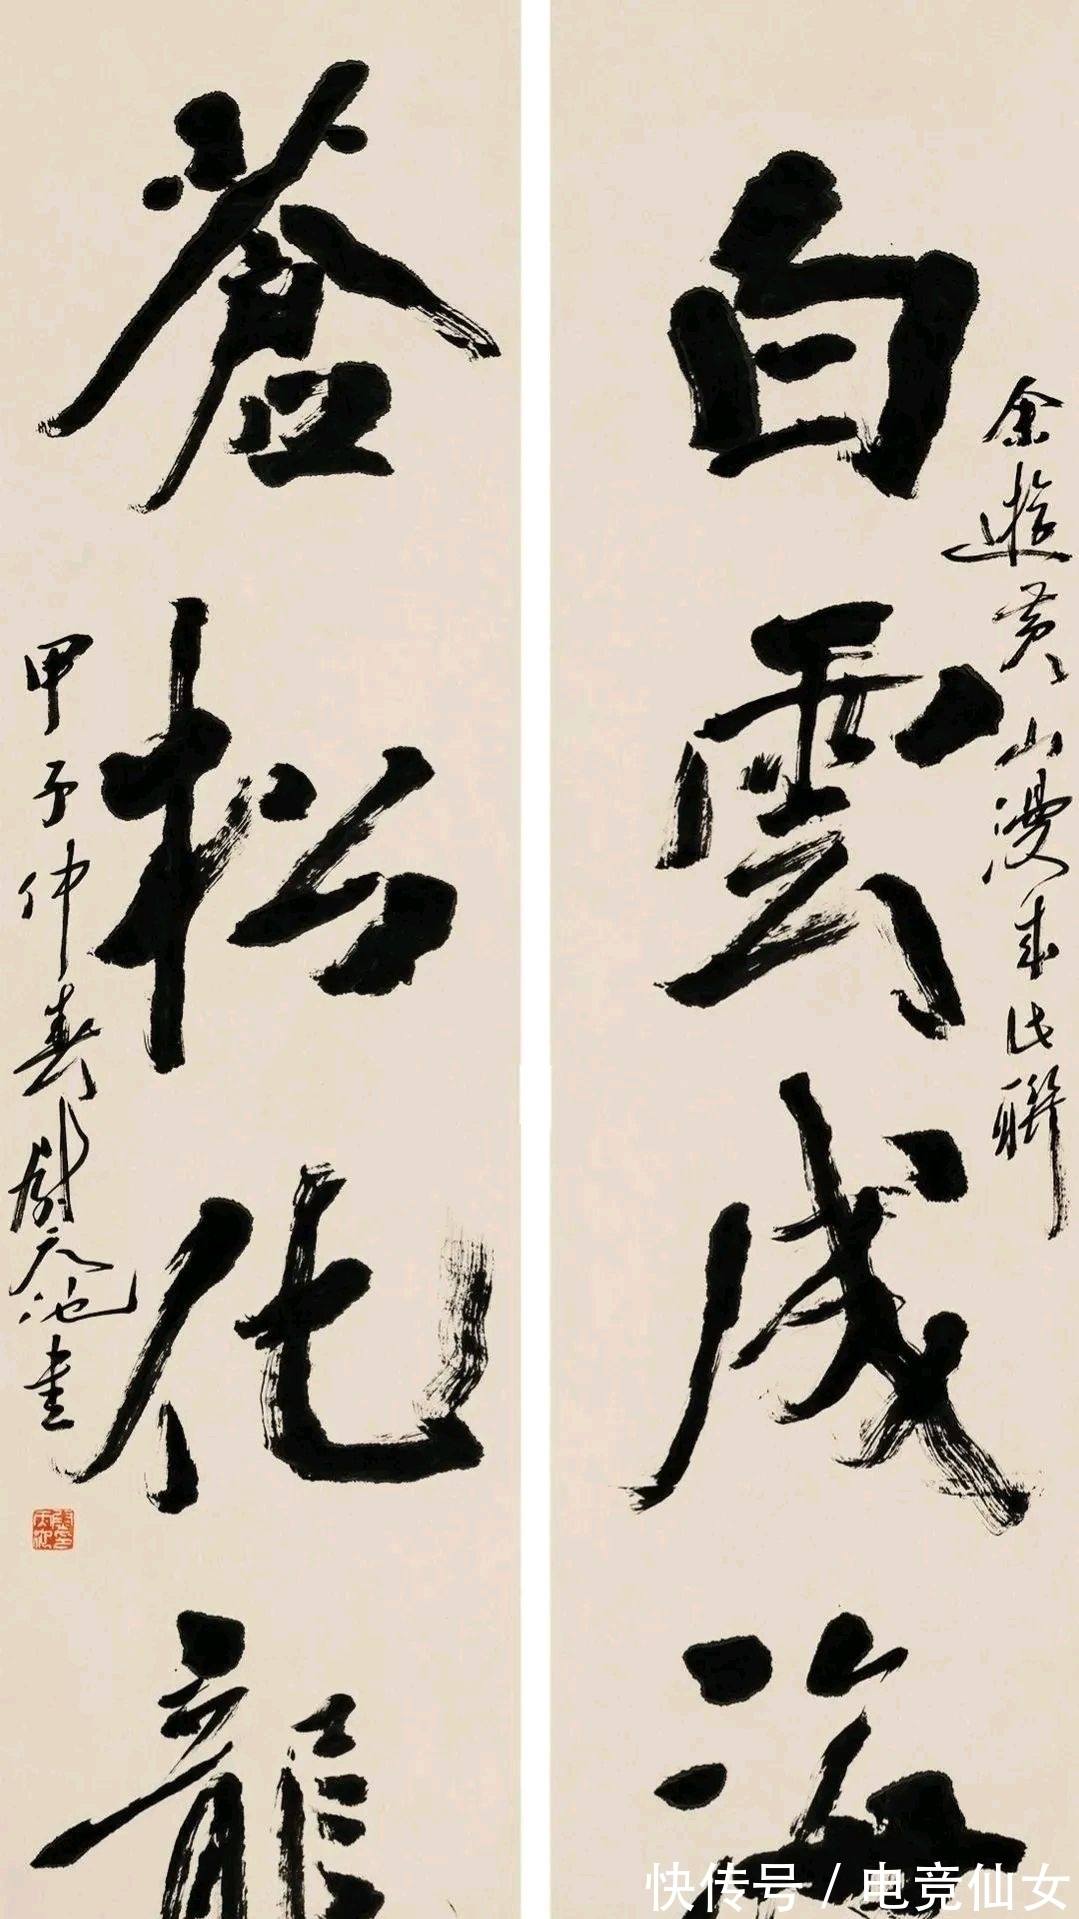 余遊黄山漫成此聯
白雲成海
蒼松化龍
甲子仲春尉天池書
快传号 / 电竞仙女